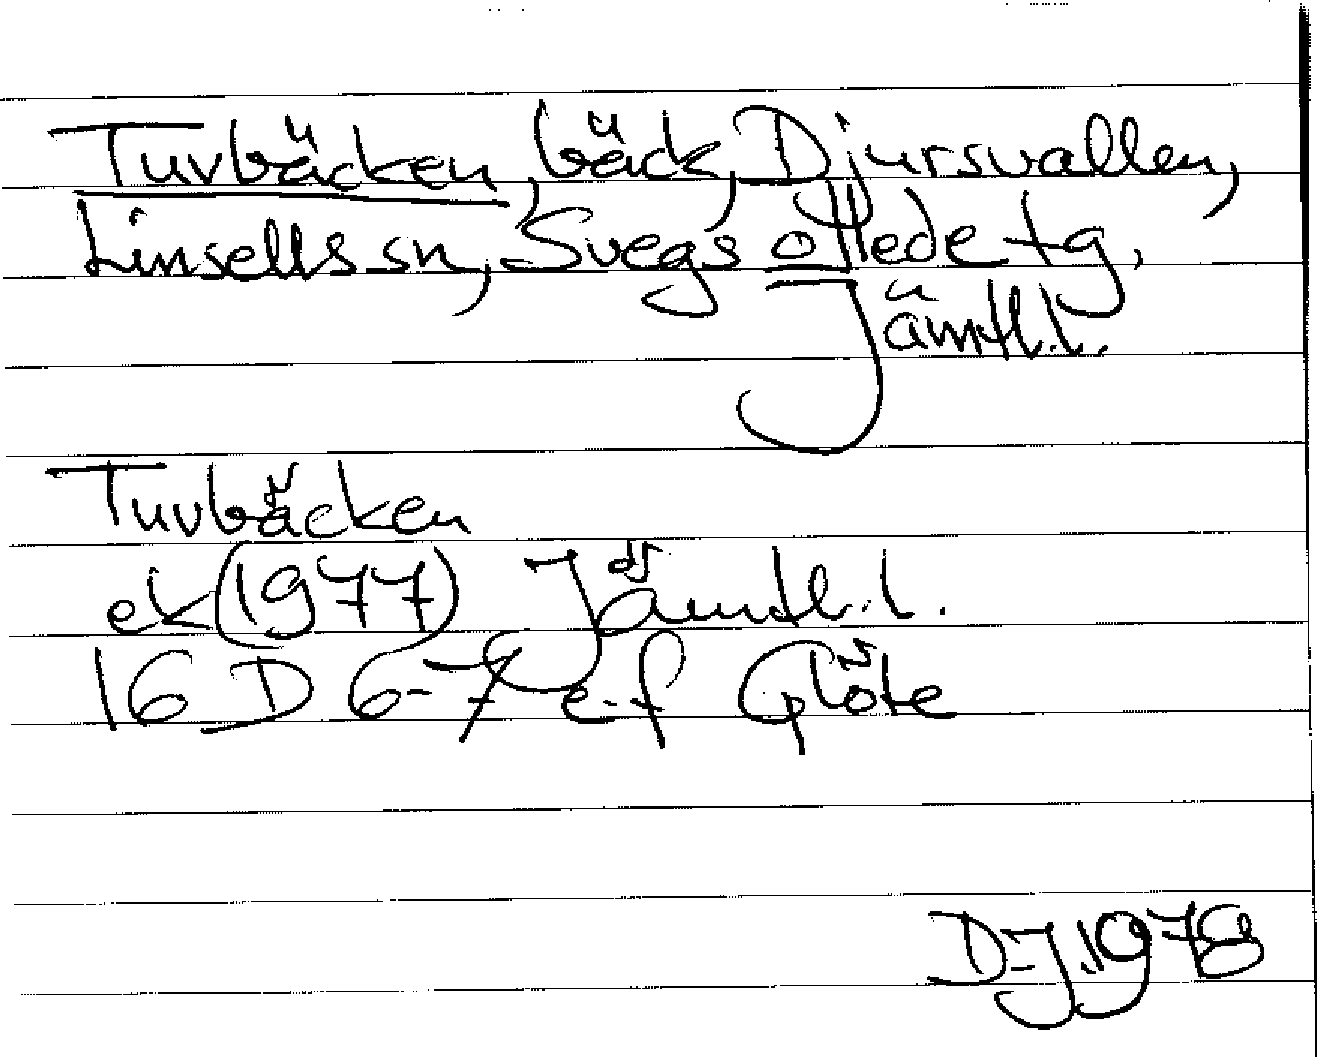 Tuvbäcken, bäck, Djursvallen,
Linsells sn, Svegs tg,
Jämtl.l.
Tuvbäcken
ek (1977) Jämtl.l.
16 D 6-7 e-f Glöte
D-J 1978